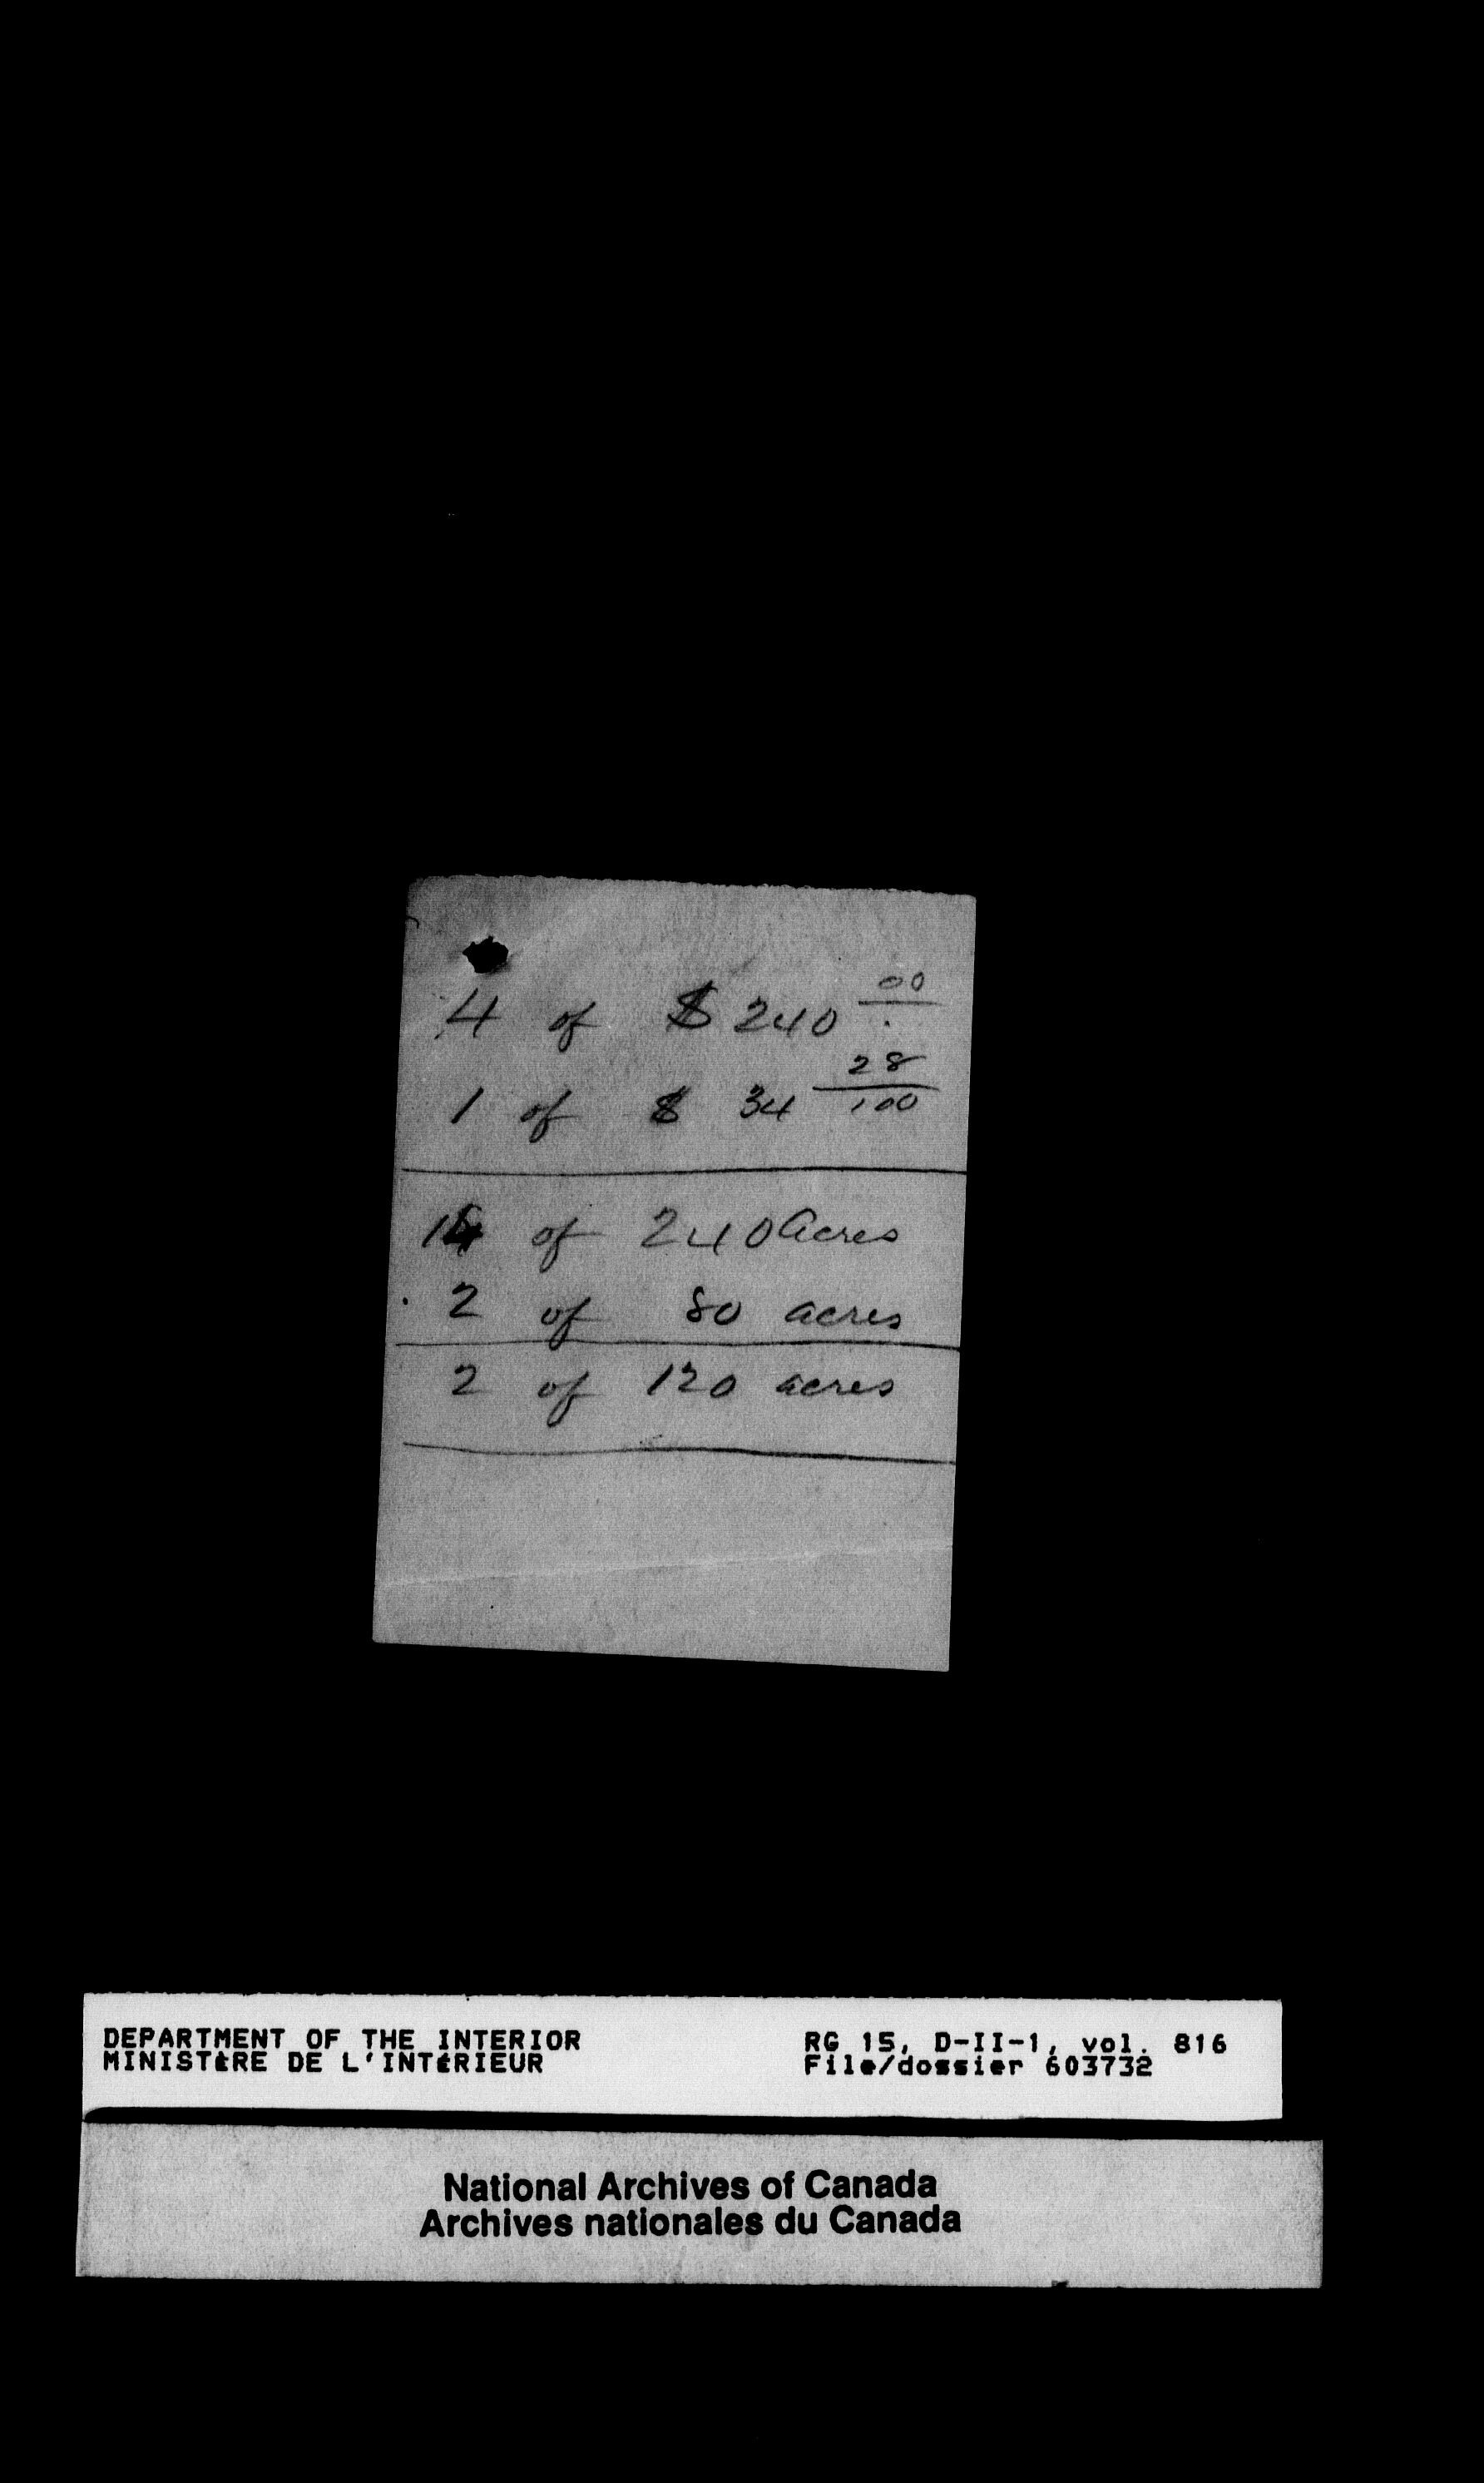 4 of $ 240 00/.
1 of $ 34 28/100
14 of 240 acres
2 of 80 acres
2 of 120 acres
DEPARTMENT OF THE INTERIOR RG 15, D-II-1, vol. 816
MINISTÈRE DE L'INTÉRIEUR File/dossier 603732
National Archives of Canada
Archives nationales du Canada